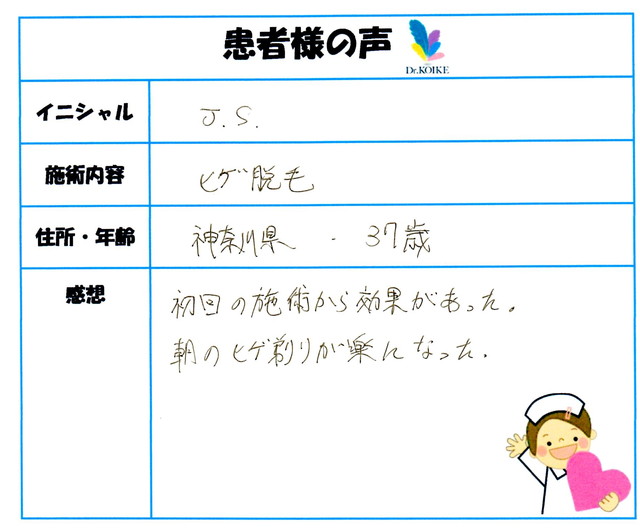 患者様の声
Dr.KOIKE
イニシャル J.S.
施術内容 ヒゲ脱毛
住所・年齢 神奈川県 ・ 37歳
感想
初回の施術から効果があった。
朝のヒゲ剃りが楽になった。